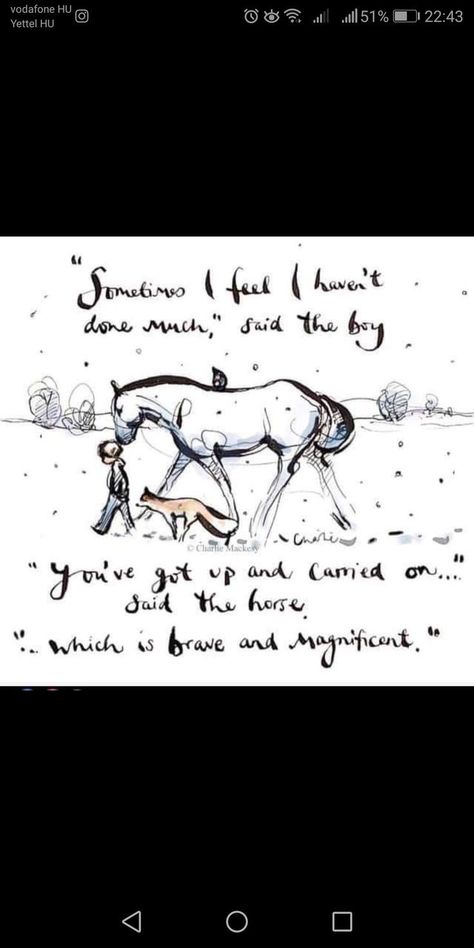 vodafone HU
Yettel HU
51% 22:43
"Sometimes I feel I haven't
done much," said the boy
© Charlie Mackesy
Charlie
"You've got up and carried on..."
said the horse.
".. which is brave and magnificent."